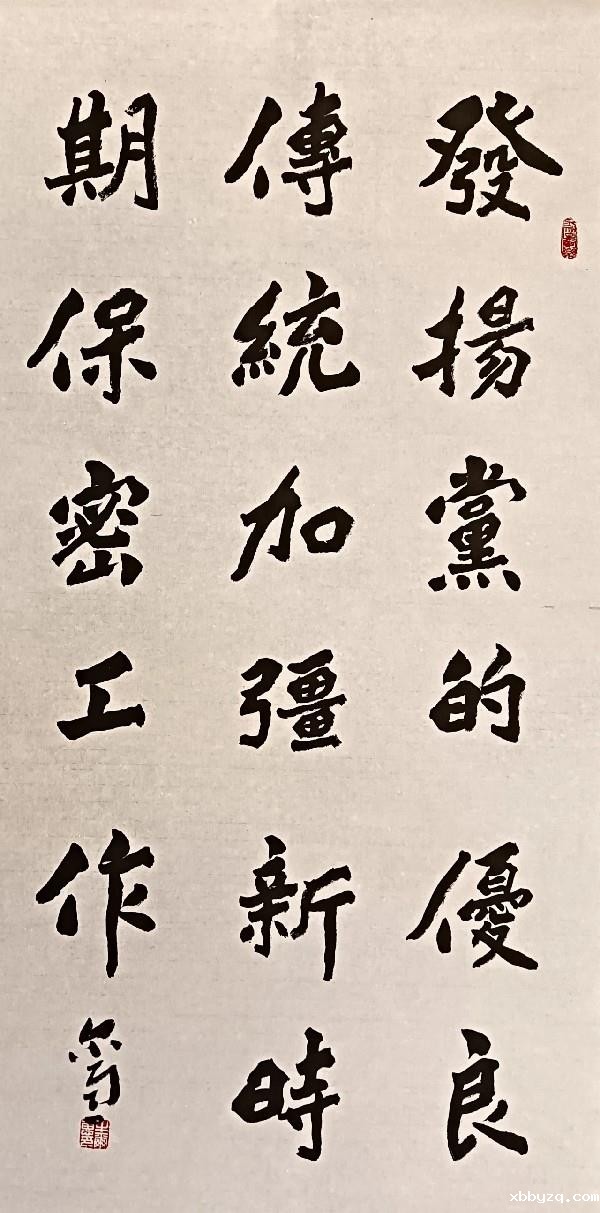 發揚黨的優良
傳統加彊新時
期保密工作
xbbyzq.com